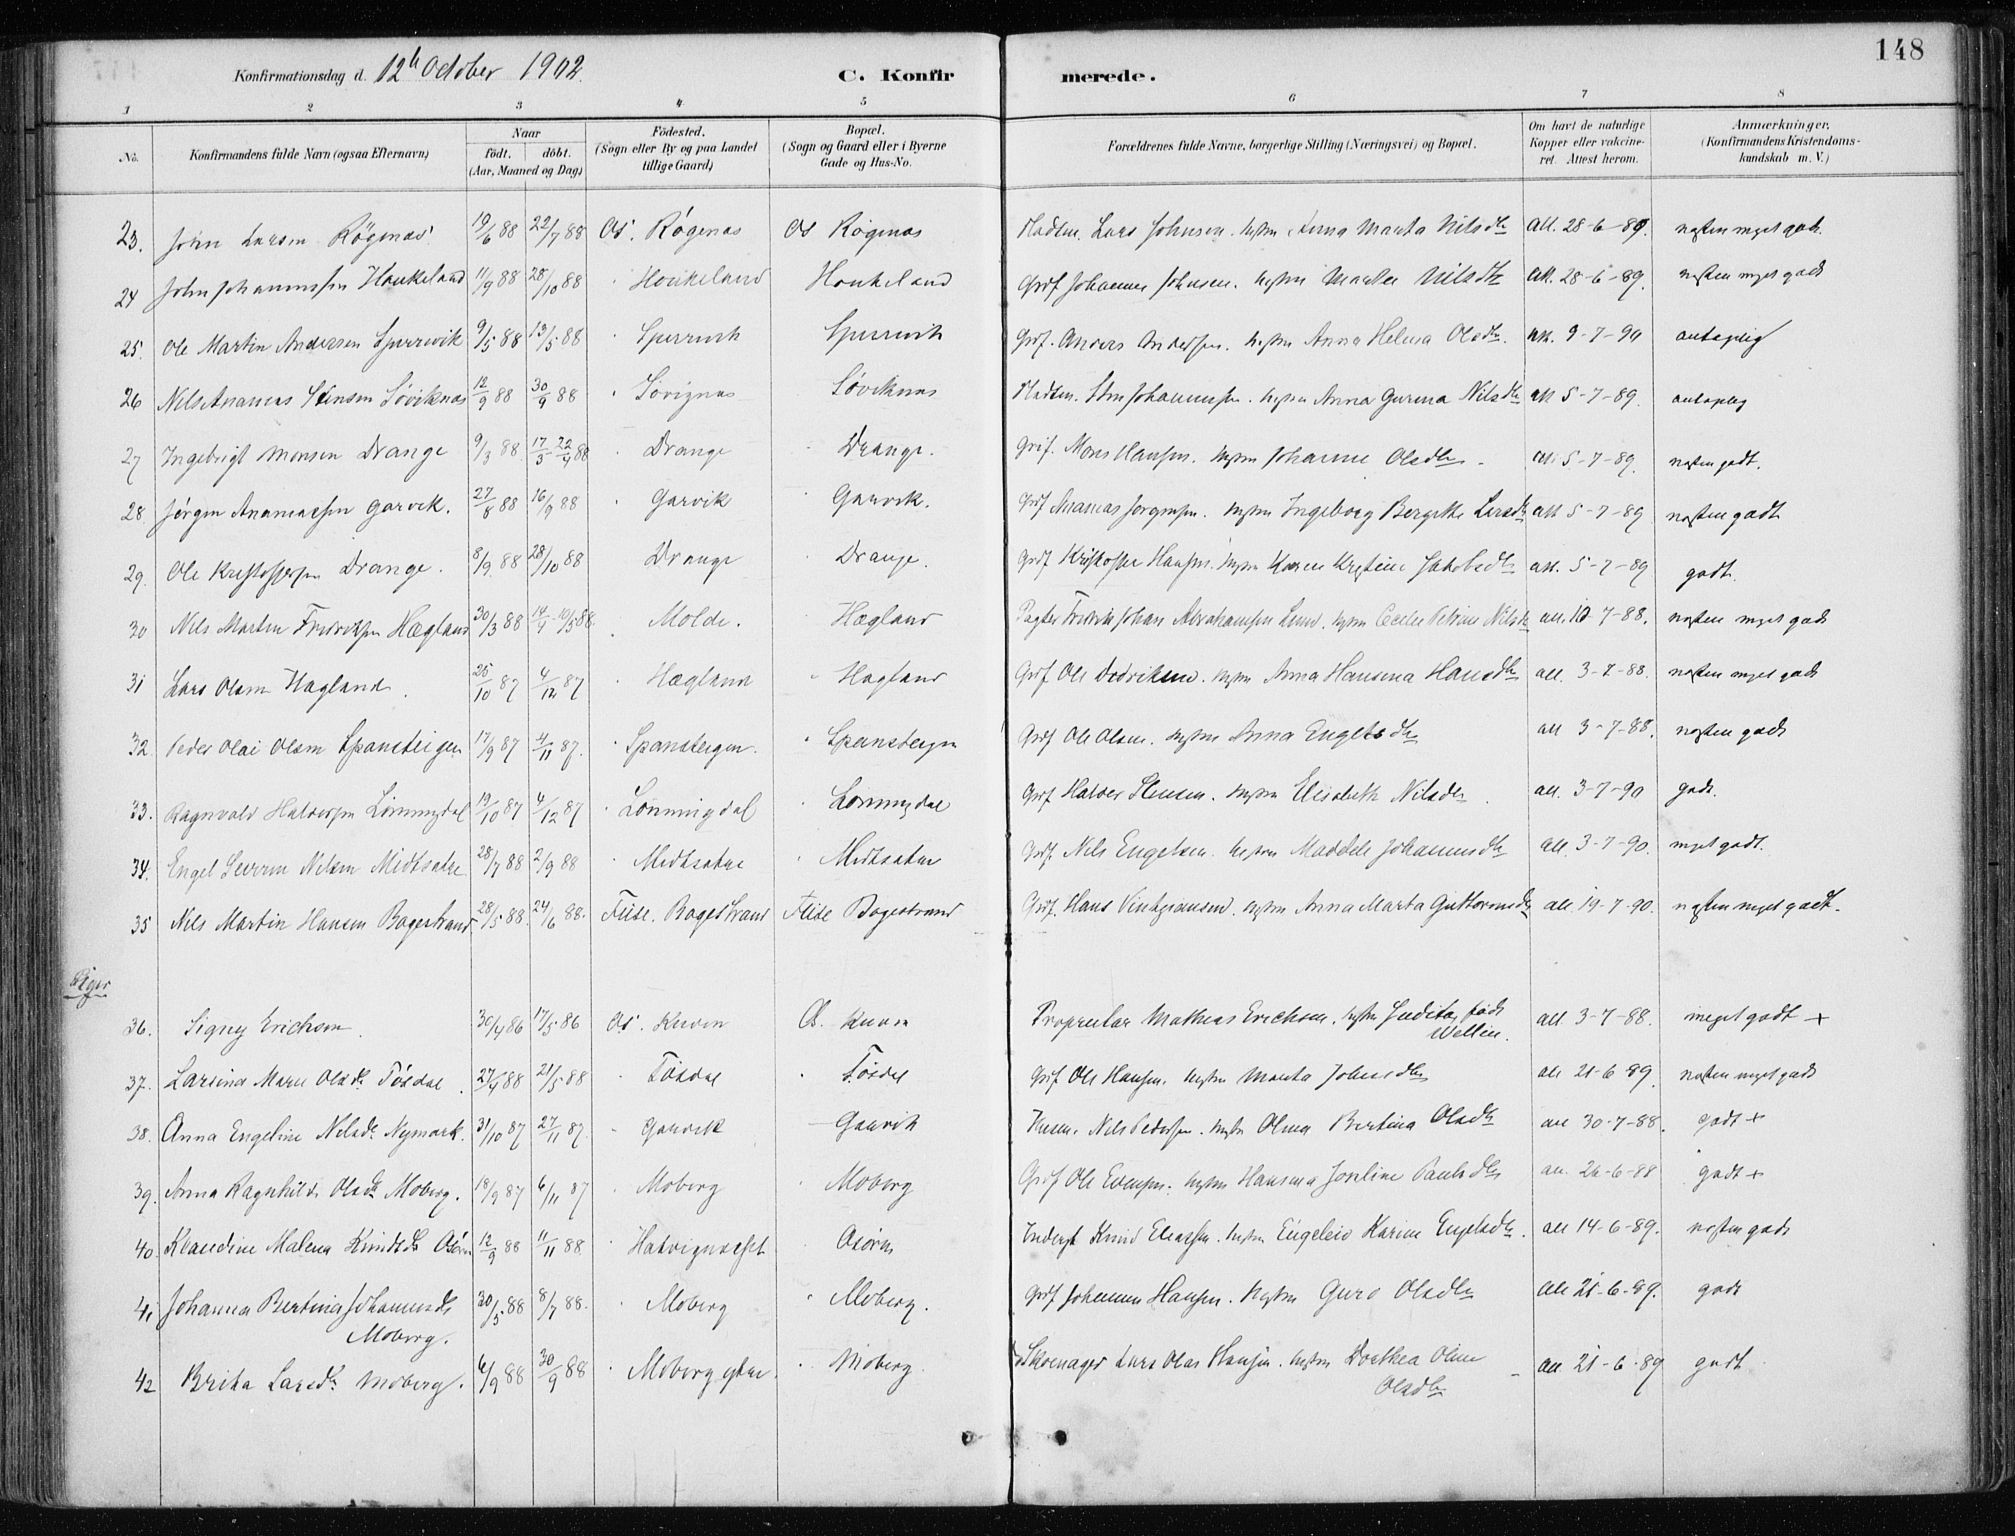 148
Konfirmationsdag d. 12h October 1902.
C. Konfirmerede.
1 2 3 4 5 6 7 8
No. Konfirmandens fulde Navn (ogsaa Efternavn) Naar født. døbt. (Aar, Maaned og Dag) Fødested. (Sogn eller By og paa Landet tillige Gaard) Bopæl. (Sogn og Gaard eller i Byerne Gade og Hus-No. Forældrenes fulde Navne, borgerlige Stilling (Næringsvei) og Bopæl. Om havt de naturlige Kopper eller vakcineret. Attest herom. Anmærkninger. (Konfirmandens Kristendomskundskab m. V.)
23. John Larsen Røgenæs 19/6 88 22/7 88 Os. Røgenæs Os Røgenæs Lars Johnsen. Hustru Anna Marta Nilsdtr att. 28-6-89. næsten meget godt.
24 John Johannessen Haukeland 11/9 88 28/10 88 Haukeland Haukeland Grdf Johannes Johnsen. Hustru Marta Nilsdtr att. 28-6-89. næsten meget godt
25. Ole Martin Andersen Spurrevik 9/5 88 13/5 88 Spurrevik Spurrevik Grdf. Anders Andersen. Hustru Anna Helena Olsdtr. att. 9-7-90 antagelig
26 Nils Ananias Stensen Søviknæs 12/9 88 30/9 88 Søvignæs Søviknæs Sten Johannessen. Hustru Anna Gurina Nilsdtr att 5-7-89. antagelig
27 Ingebrigt Monsen Drange 9/3 88 17/3-22/4 88 Drange Drange. Grdf. Mons Hansen. Hustru Johanne Olsdtr. att. 5-7-89. næsten godt.
28 Jørgen Ananiassen Garvik. 27/8 88 16/9 88 Garvik Garvik. Grdf Ananias Jørgensen. Hustru Ingeborg Bergitte Larsdtr att 5-7-89 næsten godt
29. Ole Kristoffersen Drange. 8/9. 88 28/10 88 Drange Drange. Grdf Kristoffer Hansen. Hustru Karen Kristine Jakobsdtr att. 5-7-89 godt.
30 Nils Martin Fredriksen Hægland 30/3 88 14/4-10/5 88. Molde. Hægland Fredrik Johan Abrahamsen Lund. Hustru Cecilie Petrine Nilsdtr att. 10-7-88. næsten meget godt
31 Lars Olsen Hægland. 25/10 87 4/12 87 Hægland Hægland Grdf Ole Hustru Anna Hansina Hansdtr att. 3-7-88. næsten meget godt
32. Peder Olai Olsen Spansteigen 17/9 87 4/11 87. Spansteigen. Spansteigen Grdf Ole Olsen. Hustru Anna Engelsdtr att 3-7-88. næsten godt
33. Ragnvald Halvorsen Lønningdal 19/10 87 4/12 87 Lønningdal Lønningdal Grdf Halvor Stensen. Hustru Elisabeth Nilsdtr. att. 3-7-90 godt.
34. Engel Severin Nilsen Midtsætre 28/7 88 2/9 88 Midtsætre Midtsætre Grdf. Nils Engelsen. Hustru Johannesdtr att. 3-7-90. meget godt.
35 Nils Martin Hansen Bogestrand 28/5 88. 24/6 88. Fuse. Bogestrand Fuse Bogestrand Grdf. Hans Hustru Anna Marta Guttormsdtr att 19-7-90. næsten meget godt.
Piger
36. Signy Erichsen. 30/4 86 17/5 86 Os. Kuven Os. Kuven Proprietær Mathias Erichsen. Hustru Judita, født Wellin. att 3-7-88. meget godt +
37. Larsina Marie Olsdtr Tøsdal. 27/4 88 21/5 88 Tøsdal Tøsdal Grdf Ole Hansen. Hustru Marta Johnsdtr att 21-6-89. næsten meget godt
38. Anna Engeline Nilsdtr Nymark. 31/10 87 27/11 87. Garvik Garvik Nils Pedersen. Hustru Olina Bertina Olsdtr att 30-7-88. godt +
39. Anna Ragnhild Olsdtr Moberg. 18/9 87 6/11 87 Moberg Moberg Grdf Ole Evensen. Hustru Hansina Joroline Paulsdtr att. 26-6-88 godt +
40. Klaudine Malena Knudsdtr Osøren 12/9 88 11/11 88 Hatvignæset Osøren Knud Eliassen. Hustru Engeleiv Karine Engelsdtr. att 14-6-89. næsten godt
41 Johanna Bertina Johannesdtr Moberg. 30/5 88 8/7 88. Moberg Moberg. Grdf Johannes Hansen. Hustru Guro Olsdtr att 21-6-89. godt
42 Brita Larsdtr Moberg. 4/9 88 30/9 88 Moberg ytre. Moberg. Skomager Lars Olai Hansen. Hustru Dorthea Oline Olsdtr - att. 21-6-89 godt